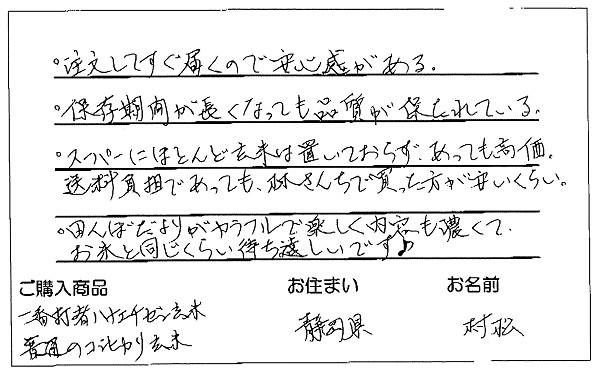 ・注文してすぐ届くので安心感がある。
・保存期間が長くなっても品質が保たれている。
・スーパーにほとんど玄米は置いておらず、あっても高価。
送料負担であっても、林さんちで買った方が安いくらい。
・田んぼだよりがカラフルで楽しく内容も濃くて、
お米と同じくらい待ち遠しいです♪
ご購入商品 お住まい お名前
二番打者ハツエチゼン玄米 静岡県 村松
普通のコシヒカリ玄米